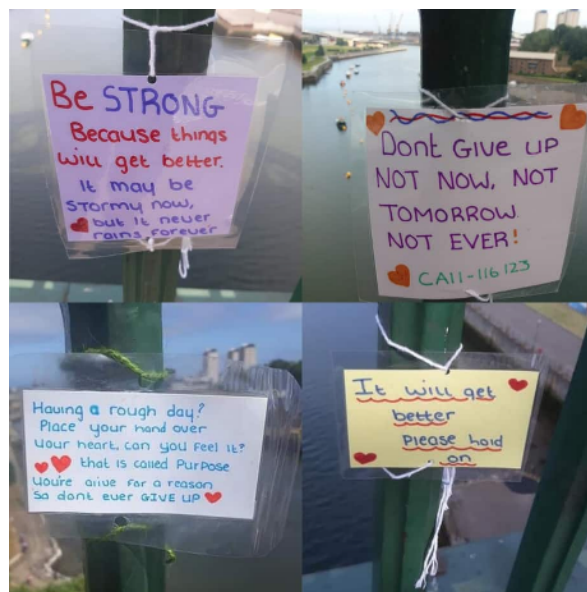 Be STRONG
Because things
will get better.
It may be
STORMY now,
but it never
rains forever
Dont GIVE UP
NOT NOW, NOT
TOMORROW
NOT EVER!
CAll-116 123
Having a rough day?
Place your hand over
your heart, can you feel it?
that is called Purpose
you're alive for a reason
So dont ever GIVE UP
It will get
better
please hold
on